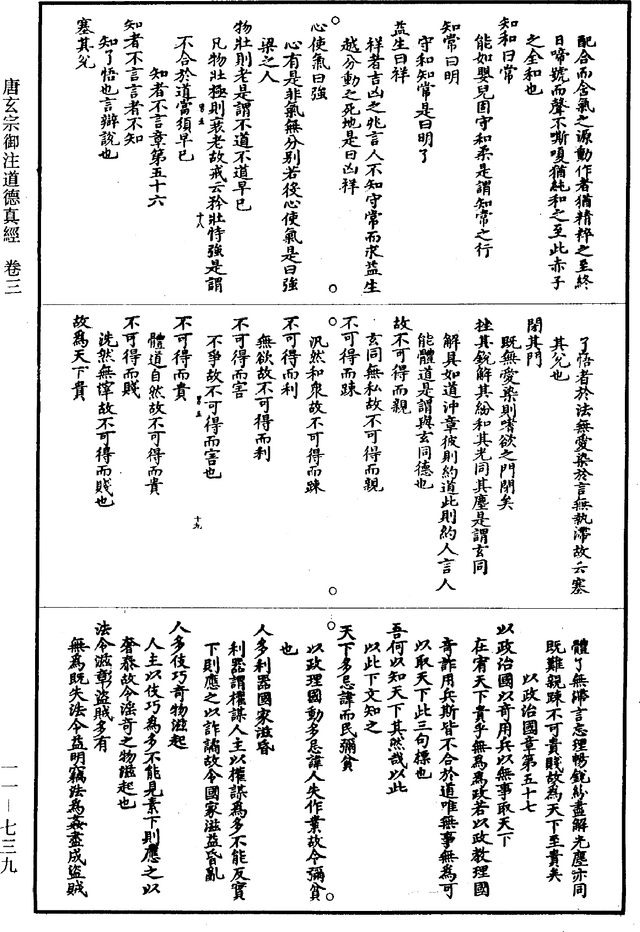 配合而含氣之源動作者猶精粹之至終
日啼號而聲不嘶嗄猶純和之至此赤子
之全和也
知和曰常
能如嬰兒固守和柔是謂知常之行
知常曰明
守和知常是曰明了
益生曰祥
祥者吉凶之兆言人不知守常而求益生
越分動之死地是曰凶祥
心使氣曰強
心有是非氣無分別若役心使氣是曰強
梁之人
物壯則老是謂不道不道早已
凡物壯極則衰老故戒云矜壯恃強是謂
不合於道當須早已
知者不言章第五十六
知者不言言者不知
知了悟也言辯說也
塞其兌
了悟者於法無愛染於言無執滯故云塞
其兌也
閉其門
既無愛染則嗜欲之門閉矣
挫其銳解其紛和其光同其塵是謂玄同
解具如道沖章彼則約道此則約人言人
能體道是謂與玄同德也
故不可得而親
玄同無私故不可得而親
不可得而踈
汎然和衆故不可得而踈
不可得而利
無欲故不可得而利
不可得而害
不爭故不可得而害也
不可得而貴
體道自然故不可得而貴
不可得而賤
洸然無滓故不可得而賤也
故為天下貴
體了無滯言忘理暢銳紛盡解光塵亦同
既難親踈不可貴賤故為天下至貴矣
以政治國章第五十七
以政治國以奇用兵以無事取天下
在宥天下貴乎無為為政若以政教理國
奇詐用兵斯皆不合於道唯無事無為可
以取天下此三句標也
吾何以知天下其然哉以此
以此下文知之
天下多忌諱而民彌貧
以政理國動多忌諱人失作業故令彌貧
也
人多利器國家滋昏
利器謂權謀人主以權謀為多不能反實
下則應之以詐譎故令國家滋益昏亂
人多伎巧奇物滋起
人主以伎巧為多不能見素下則應之以
奢泰故令淫奇之物滋起也
法令滋彰盜賊多有
無為既失法令益明竊法為姦盡成盜賊
唐玄宗御注道德真經 卷三
一一－七三九
十八
十九